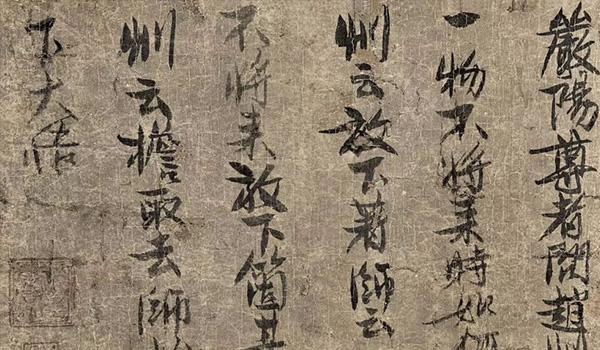 嚴陽尊者問趙州
一物不將来時如何
州云放下著師云
不將来放下箇甚
州云擔取去師
下大悟